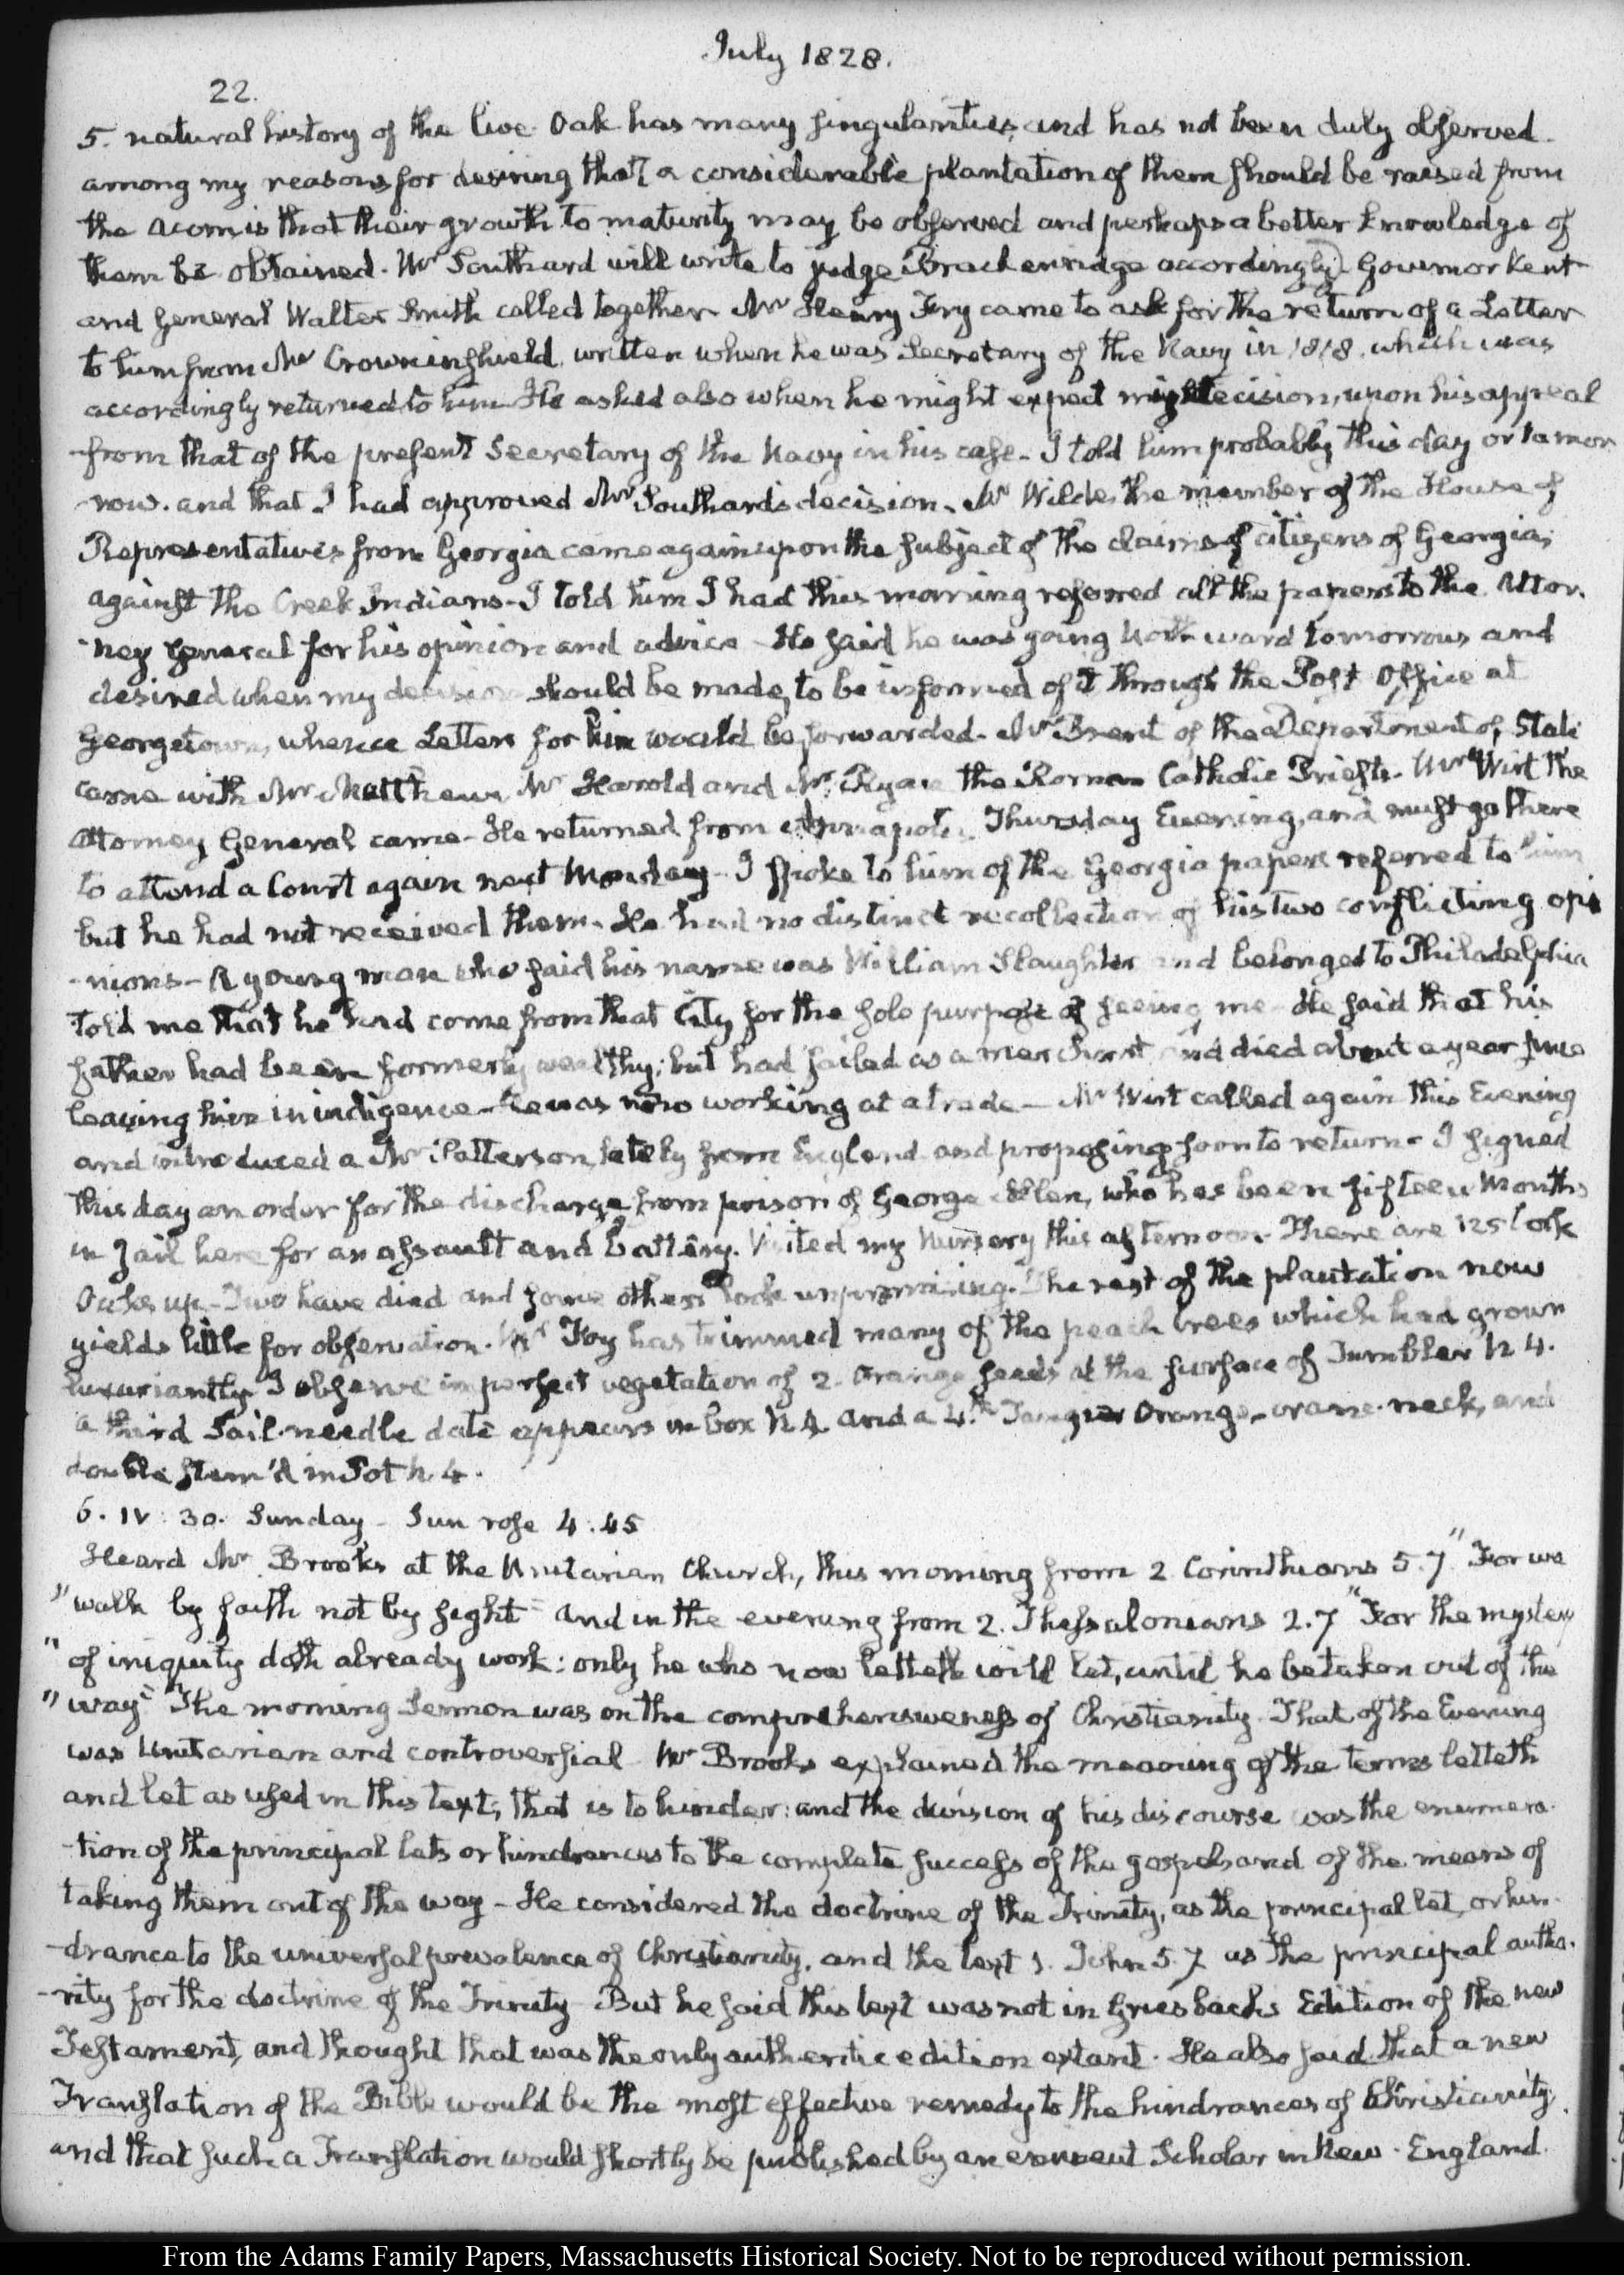 July 1828.
22.
5. natural history of the live Oak has many singularities, and has not been duly observed.
among my reasons for desiring that a considerable plantation of them should be raised from
the acorn is that their growth to maturity may be observed and perhaps a better knowledge of
them be obtained. Mr Southard will write to judge Brackenridge accordingly. Governor Kent
and General Walter Smith called together Mr Henry Fry came to ask for the return of a Letter
to him from Mr Crowninshield written when he was Secretary of the Navy in 1818. which was
accordingly returned to him. He asked also when he might expect my decision, upon his appeal
from that of the present Secretary of the Navy in his case. I told him probably this day or tomor
-row. and that I had approved Mr Southard's decision. Mr Wilde, the member of the House of
Representatives from Georgia came again upon the subject of the claims of citizens of Georgia,
against the Creek Indians. I told him I had this morning referred all the papers to the Attor.
-ney General for his opinion and advice. He said he was going Northward tomorrow and
desired when my decision should be made, to be informed of it through the Post Office at
Georgetown, whence Letters for him would be forwarded. Mr Brent of the Department of State
came with Mr Matthews Mr Harold and Mr Ryan the Roman Catholic Priests. Mr Wirt the
Attorney General came. He returned from Annapolis Thursday Evening, and must go there
to attend a Court again next Monday. I spoke to him of the Georgia papers referred to him
but he had not received them. He had no distinct recollection of his two conflicting opi
-nions. A young man who said his name was William Slaughter and belonged to Philadelphia
told me that he had come from that City for the sole purpose of seeing me. He said that his
father had been formerly wealthy; but had failed as a merchant and died about a year since
leaving him in indigence. He was now working at a trade. Mr Wirt called again this Evening
and introduced a Mr Patterson, lately from England and proposing soon to return. I signed
this day an order for the discharge from prison of George Allen, who has been fifteen Months
in Jail here for an assault and battery. Visited my Nursery this afternoon. There are 125
Oaks up. Two have died and some others look unpromising. The rest of the plantation now
yields little for observation. Mr Foy has trimmed many of the peach trees which had grown
luxuriantly. I observe imperfect vegetation of 2 Orange seeds at the surface of Tumbler N 4.
a third Sail-needle date appears in box N 4 and a 4.th Tangier Orange, crane-neck, and
double stem'd in Pot N. 4.
6. IV: 30. Sunday. Sun rose 4:45
Heard Mr Brooks at the Unitarian Church, this morning from 2 Corinthians 5.7 "For we
"walk by faith not by sight" and in the evening from 2. Thessalonians 2.7 "For the mystery
"of iniquity doth already work: only he who now letteth will let, until he be taken out of the
"way" The morning Sermon was on the comprehensiveness of Christianity. That of the Evening
was Unitarian and controversial Mr Brooks explained the meaning of the terms letteth
and let as used in this text, that is to hinder: and the division of his discourse was the enumera.
-tion of the principal lets or hindrances to the complete success of the gospel and of the means of
taking them out of the way. He considered the doctrine of the Trinity, as the principal let, or hin.
-drance to the universal prevalence of Christianity, and the text 1. John 5.7 as the principal autho.
-rity for the doctrine of the Trinity. But he said this text was not in Griesbachs Edition of the new
Testament, and thought that was the only authentic edition extant. He also said that a new
Translation of the Bible would be the most effective remedy to the hindrances of Christianity,
and that such a Translation would shortly be published by an eminent Scholar in New-England.
From the Adams Family Papers, Massachusetts Historical Society. Not to be reproduced without permission.